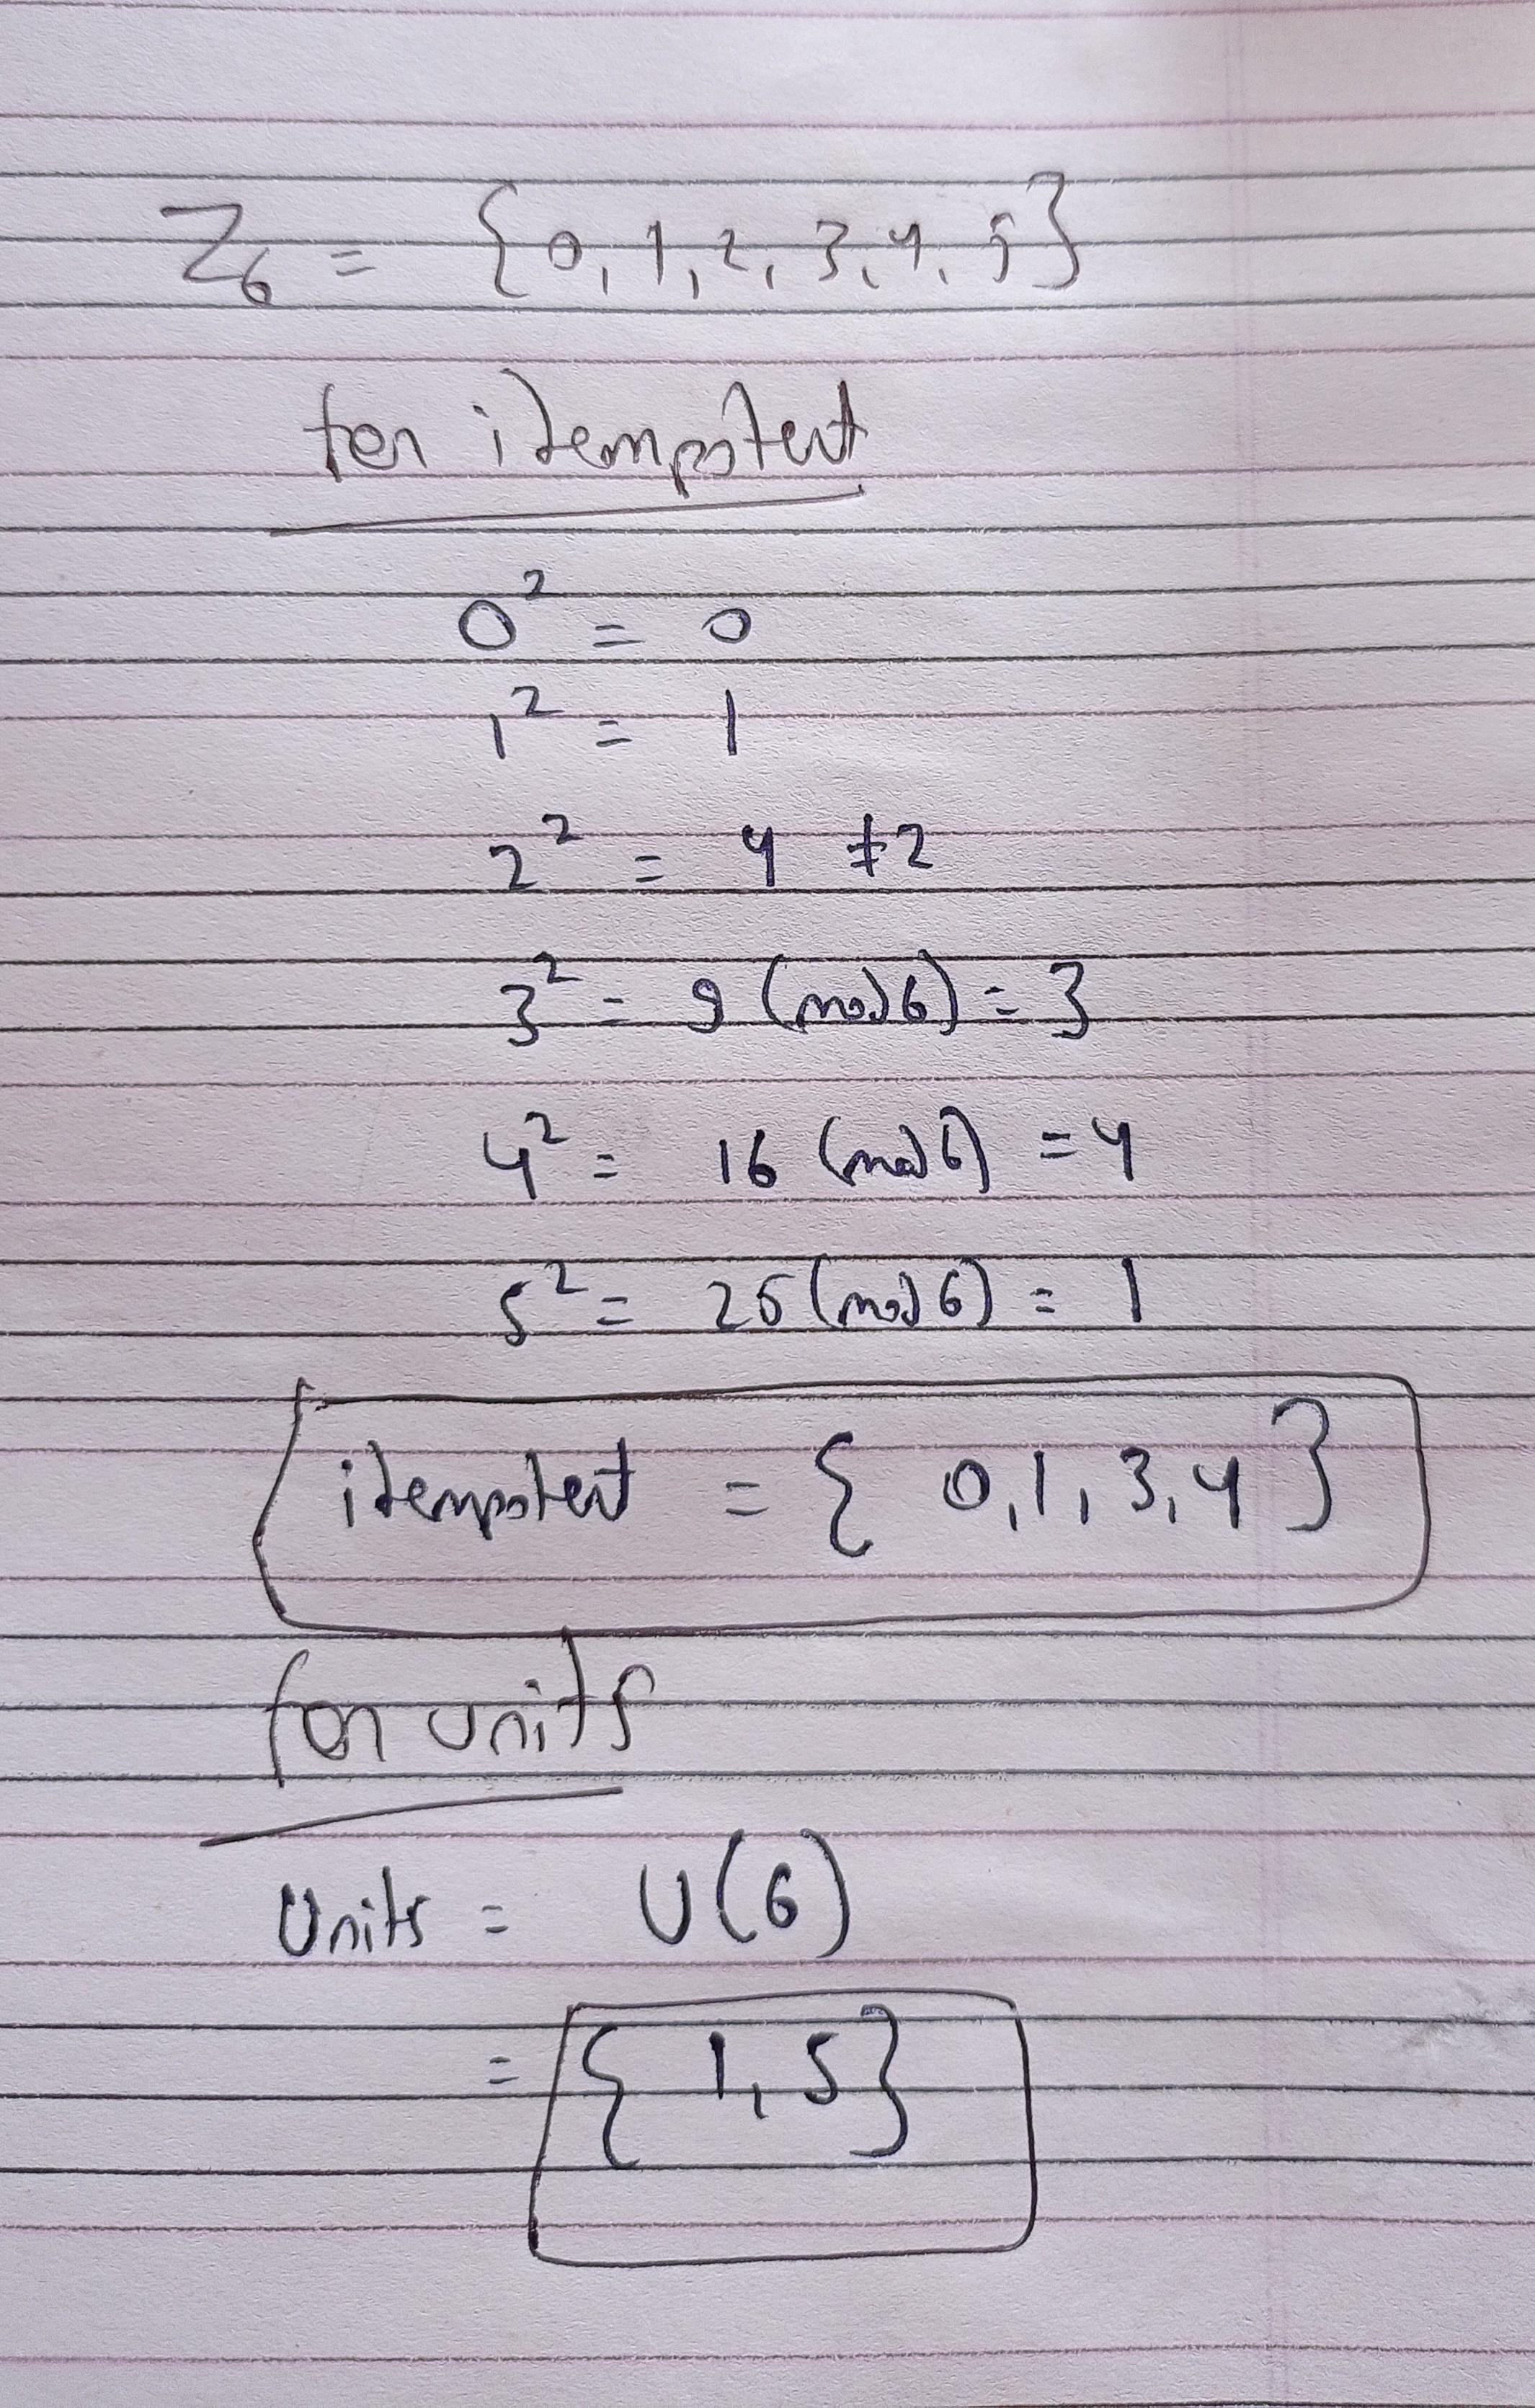 Z₆ = {0, 1, 2, 3, 4, 5}
for idempotent
0² = 0
1² = 1
2² = 4 ≠ 2
3² = 9 (mod 6) = 3
4² = 16 (mod 6) = 4
5² = 25 (mod 6) = 1
idempotent = { 0, 1, 3, 4 }
for units
Units = U(6)
= { 1, 5 }